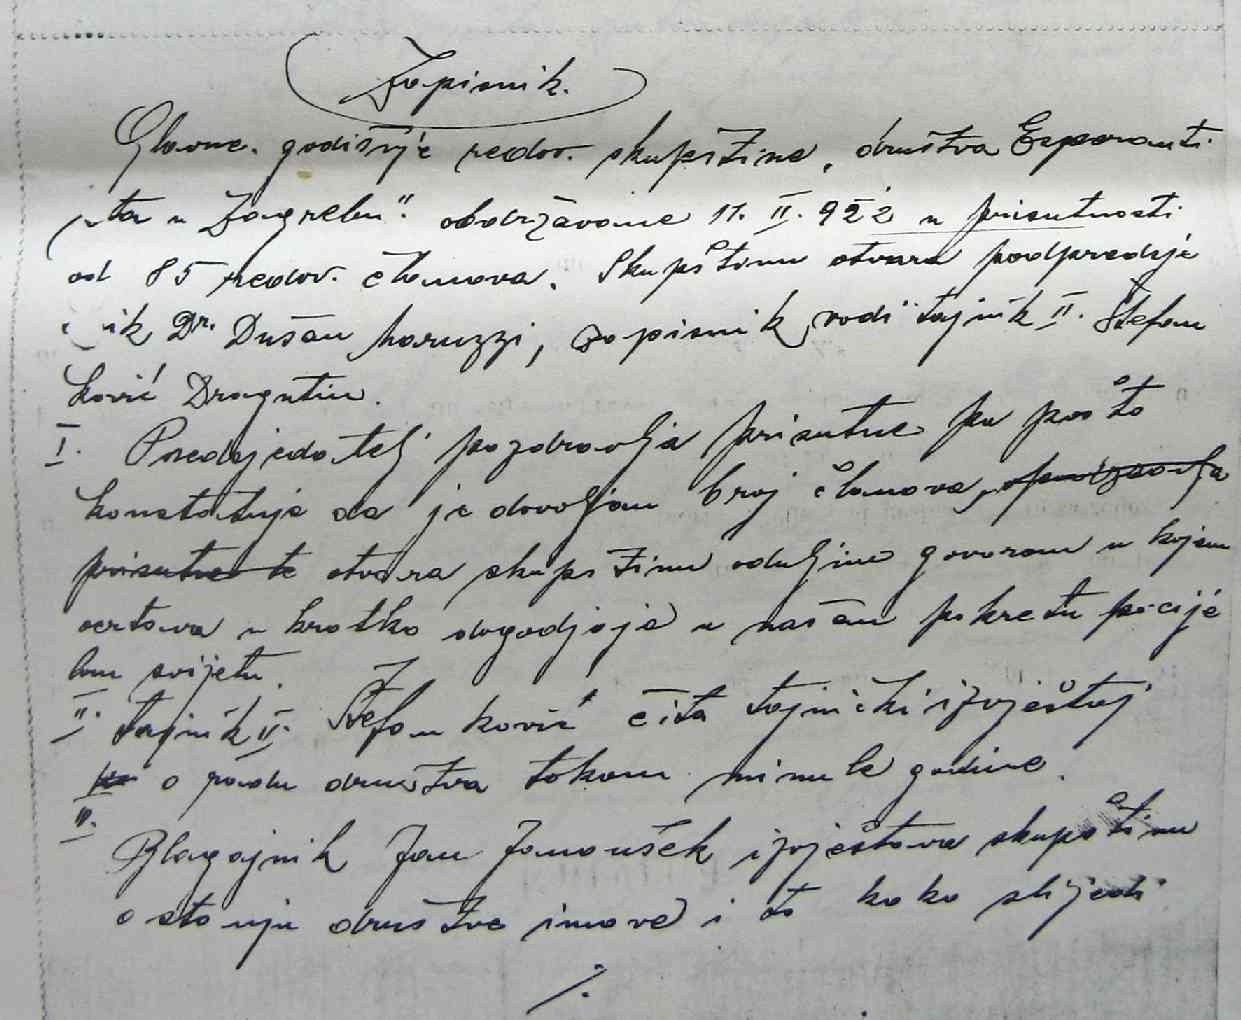 Zapisnik.
Glavne. godišnje redov. skupštine, društva Esperanti
sta u Zagrebu". obdržavane 11. II. 922 u prisutnosti
od 85 redov. članova. Skupštinu otvara podpredsje
nik Dr. Dušan Maruzzi, zapisnik vodi tajnik II. Štefan
ković Dragutin.
I. Predsjedatelj pozdravlja prisutne pa pošto
konstatuje da je dovoljan broj članova, pozdravlja
prisutne te otvara skupštinu oduljim govorom u kojem
ocrtava u kratko dogodjaje u našem pokretu po cije
lom svijetu.
II. tajnik II. Štefanković čita tajnički izvještaj
o radu društva tokom minule godine.
III.
Blagajnik Jan Janoušek izvještava skupštinu
o stanju društvene imovine i to kako slijedi
./.